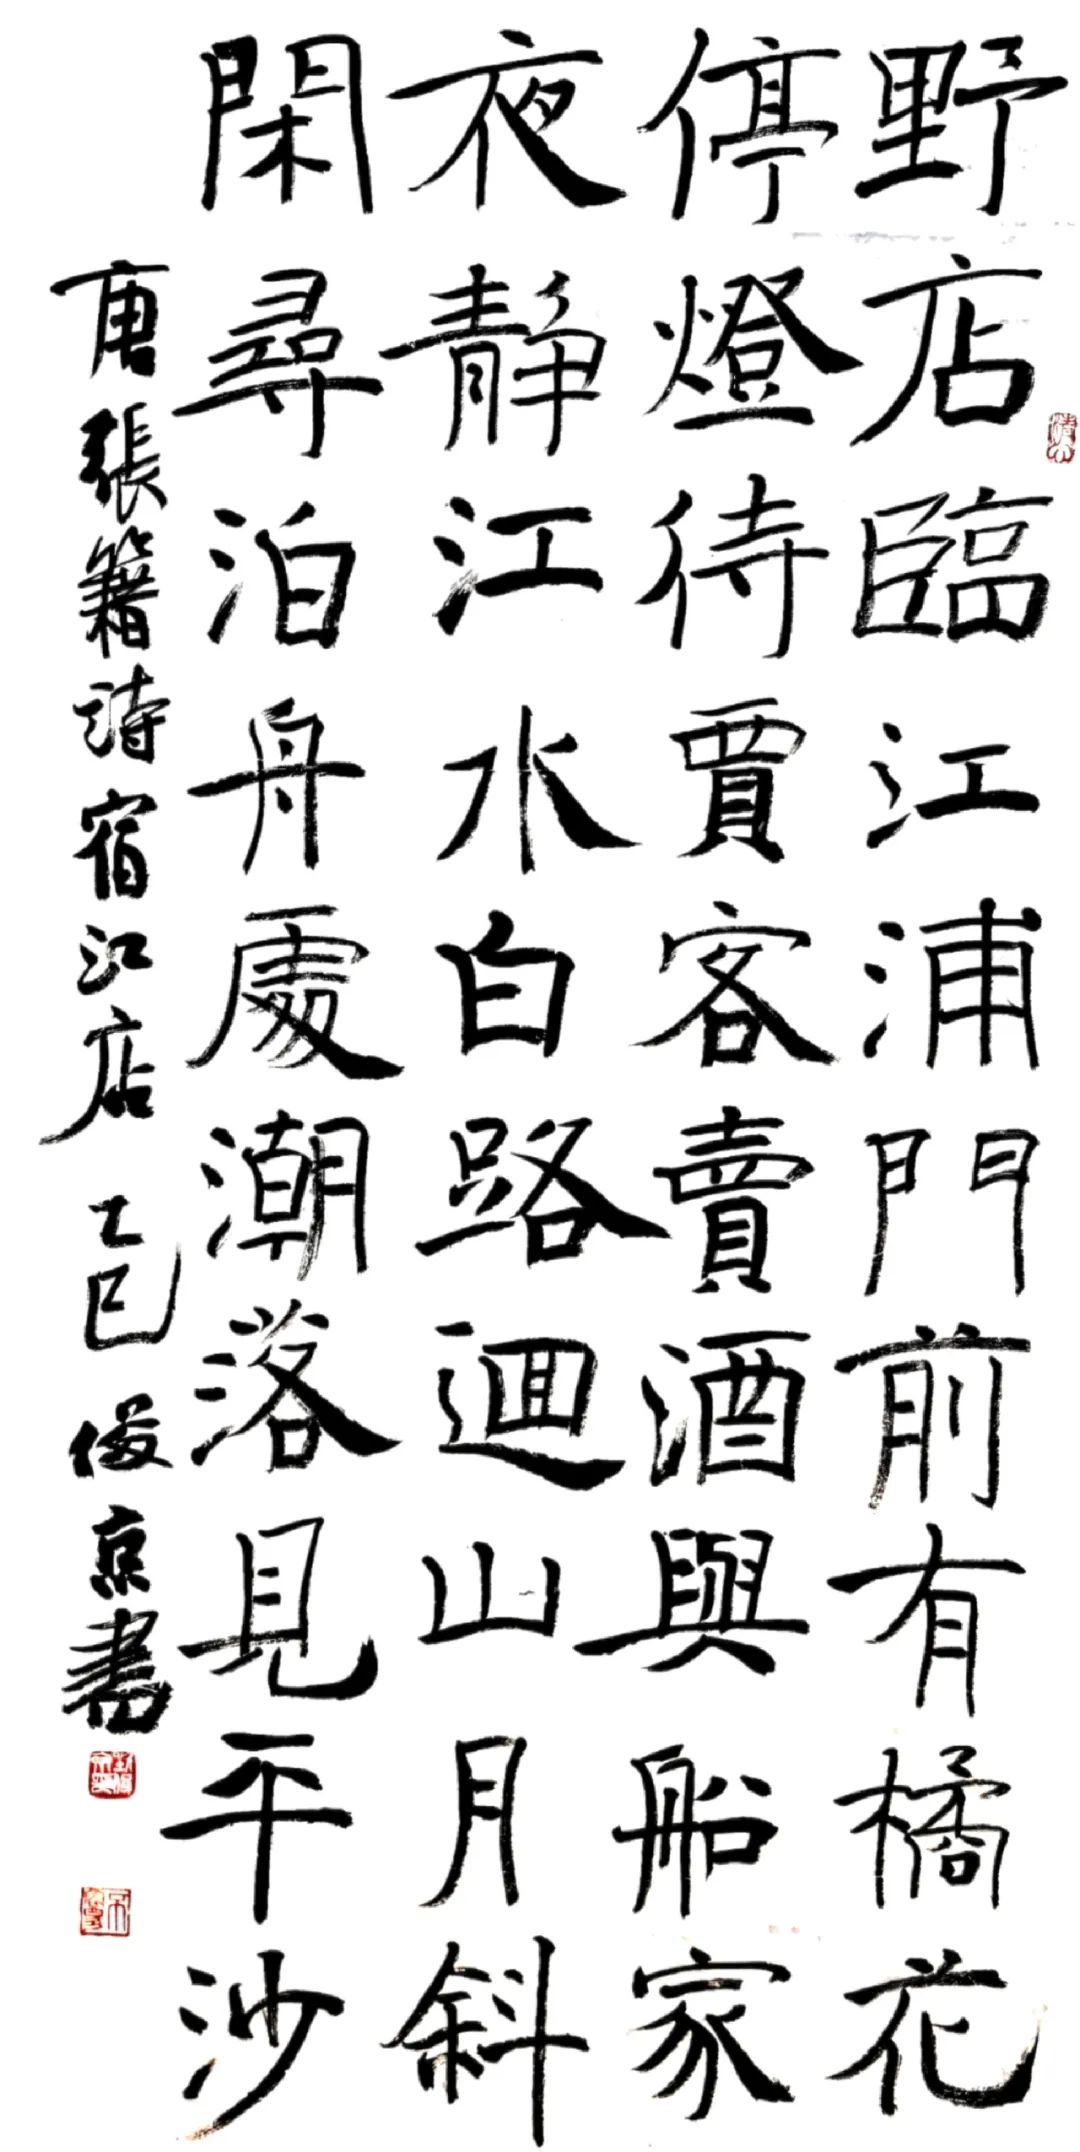 野店臨江浦門前有橘花
停燈待賈客賣酒與船家
夜靜江水白路迴山月斜
閑尋泊舟處潮落見平沙
唐張籍詩宿江店 乙巳 俊京書